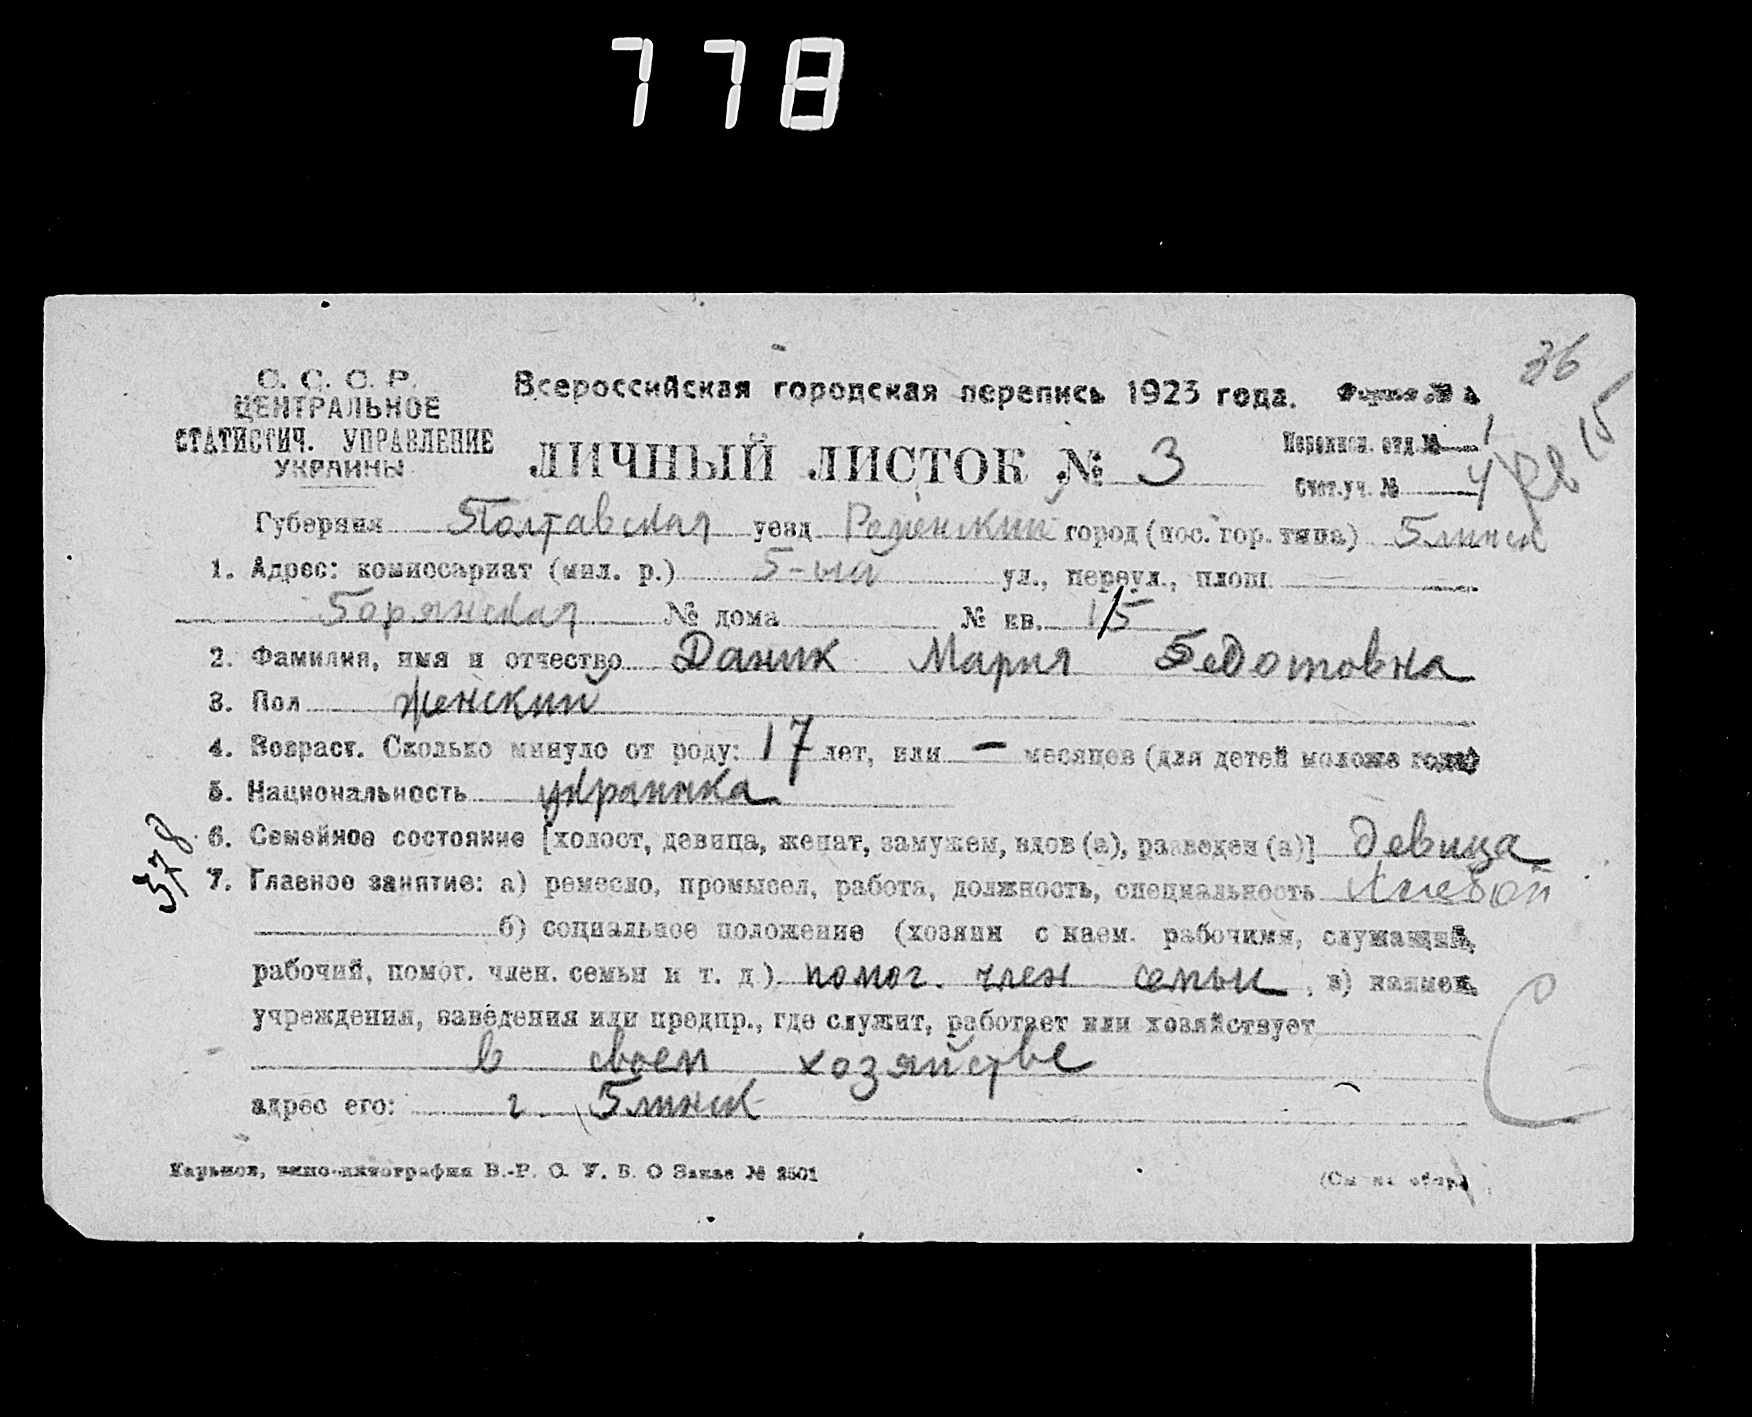 778
36
С. С. С. Р.
ЦЕНТРАЛЬНОЕ
СТАТИСТИЧ. УПРАВЛЕНИЕ
УКРАИНЫ
Всероссийская городская перепись 1923 года. Форма № 1
ЛИЧНЫЙ ЛИСТОК № 3
Переписн. отд. № 1
Счет. уч. № 4
15
Губерния Полтавская уезд Роменский город (пос. гор. типа)
1. Адрес: комиссариат (мил. р.) 5-ый ул., переул., площ.
№ дома № кв. 15
2. Фамилия, имя и отчество Даник Мария Федотовна
3. Пол женский
4. Возраст. Сколько минуло от роду: 17 лет, или — месяцев (для детей моложе года)
5. Национальность украинка
378
6. Семейное состояние [холост, девица, женат, замужем, вдов (а), разведен (а)] девица
7. Главное занятие: а) ремесло, промысел, работа, должность, специальность
б) социальное положение (хозяин с наем. рабочими, служащий,
рабочий, помог. член. семьи и т. д.) помог. член семьи, в) наимен.
учреждения, заведения или предпр., где служит, работает или хозяйствует
в своем хозяйстве
адрес его: г.
Харьков, В.-Р. С. У. В. О Заказ № 2501
(См на обор.)